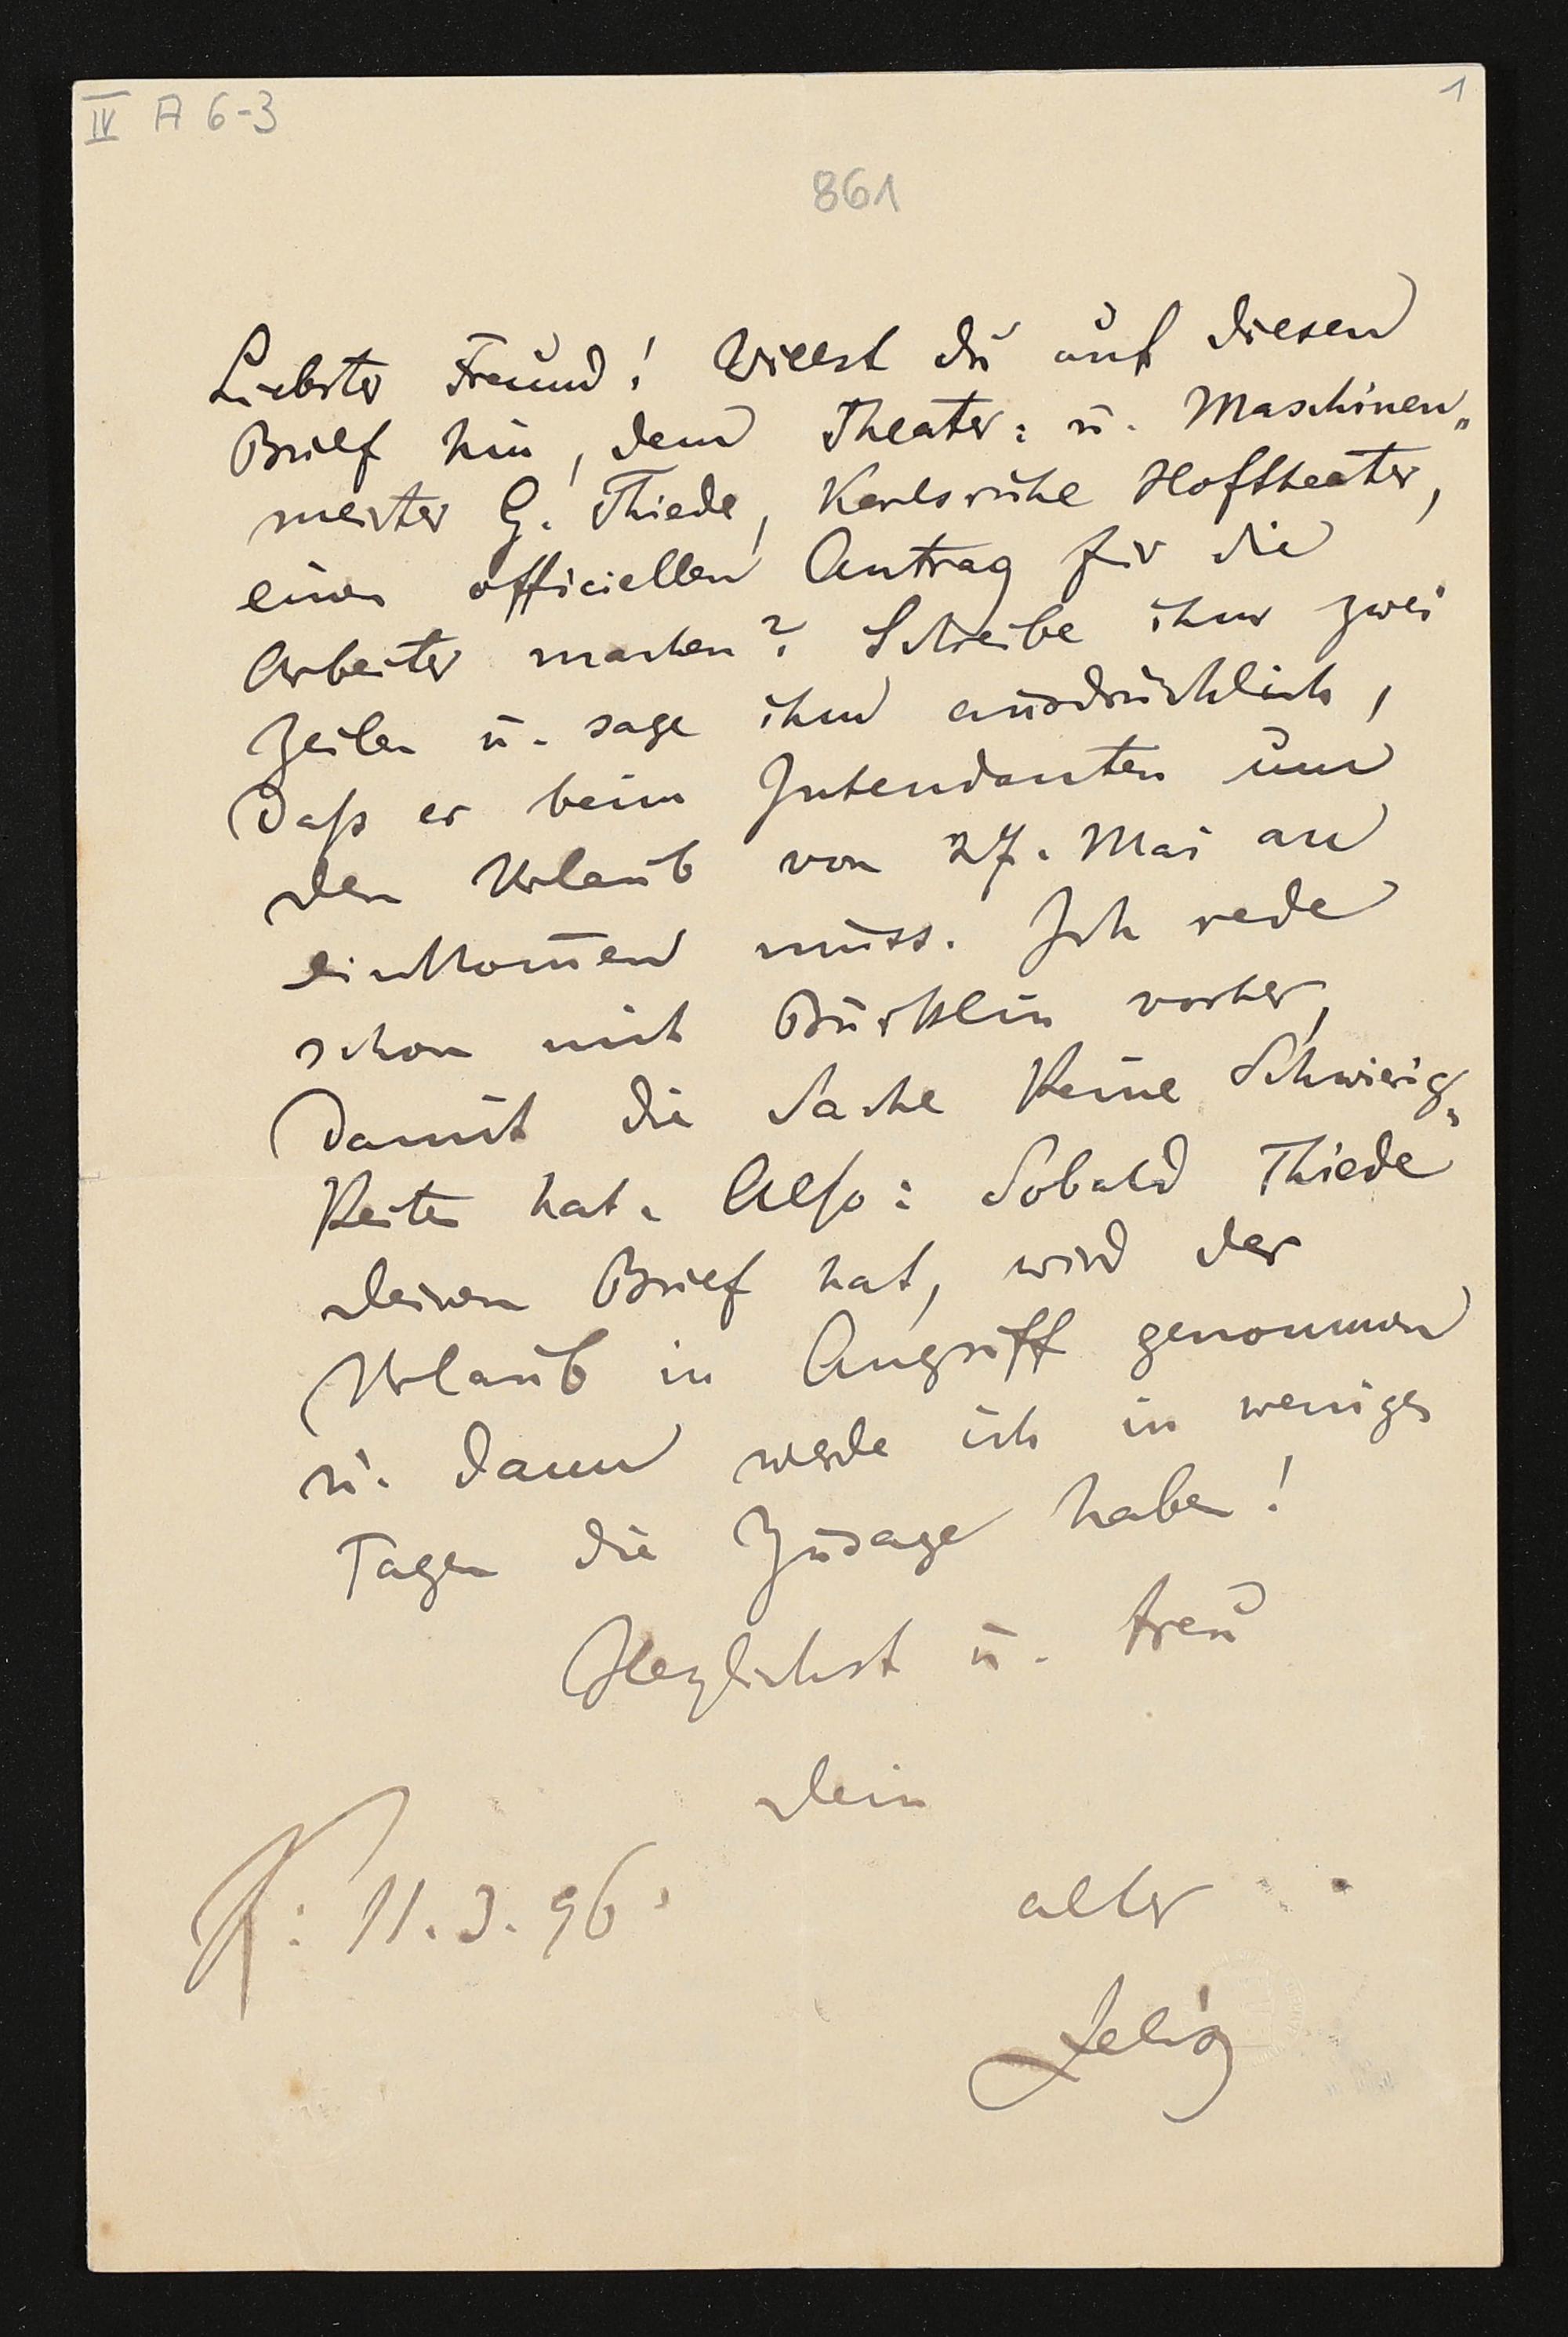 IV A 6-3
1
861
Liebster Freund! Willst du auf diesen
Brief hin, dem Theater- u. Maschinen-
meister G. Thiede, Karlsruhe Hoftheater,
einen officiellen Antrag für die
Arbeiter machen? Schreibe ihm zwei
Zeilen u. sage ihm ausdrücklich,
daß er beim Intendanten um
den Urlaub von 27. Mai an
einkom̄en muss. Ich rede
schon mit Bürklin vorher,
damit die Sache keine Schwierig-
keiten hat. Also: Sobald Thiede
deinen Brief hat, wird der
Urlaub in Angriff genommen
u. dann werde ich in wenigen
Tagen die Zusage haben!
Herzlichst u. treu
dein
alter
K: 11.3.96.
Felix